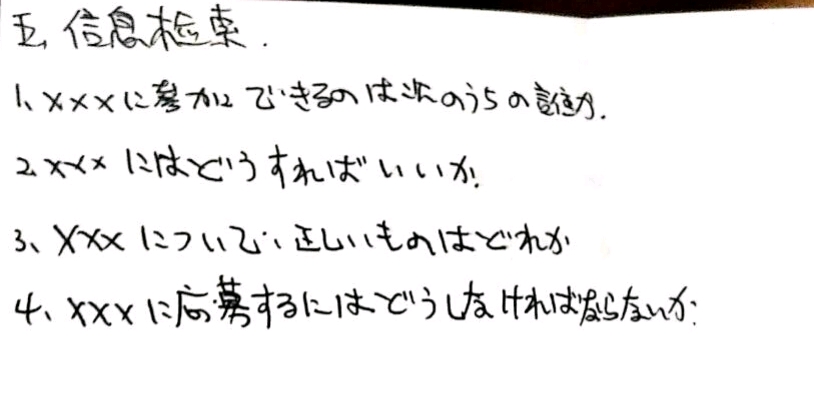 五、信息检索.
1、×××に募加できるのは次のうちの誰か.
2、×××にはどうすればいいか.
3、×××について、正しいものはどれか
4、×××に応募するにはどうしなければならないか.